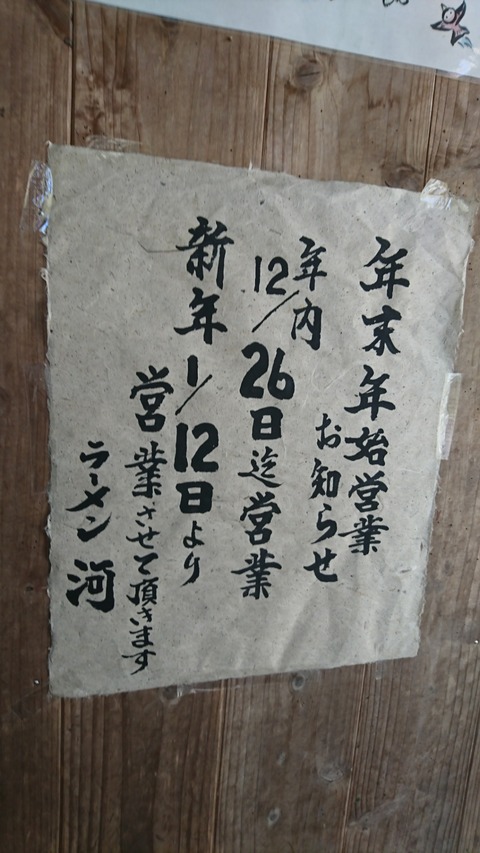 年末年始営業
お知らせ
年内
12/26日迄営業
新年1/12日より
営業させて頂きます
ラーメン河